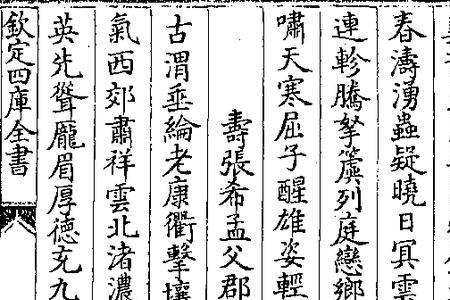 春濤湧蟲疑曉日冥雲
連軫騰拏簴列庭戀鄉
嘯天寒屈子醒雄姿輕
壽張希孟父郡
古渭垂綸老康衢擊壤
氣西郊肅祥雲北渚濃
英先聳龎眉厚德克九
欽定四庫全書